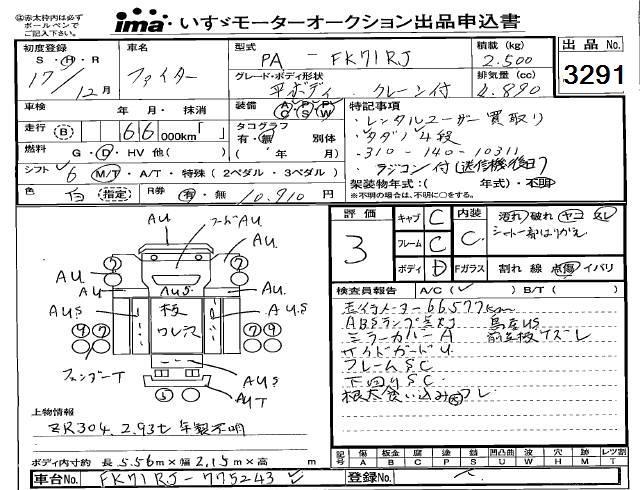 ◎太赤枠内は必ず
ボールペンで
ご記入下さい。
ima いすゞモーターオークション出品申込書
初度登録
S・H・R
17/12月
車名
ファイター
型式
PA－FK71RJ
積載(kg)
2.500
出品No.
3291
グレード・ボディ形状
平ボディ クレーン付
排気量(cc)
4.890
車検 年・月・抹消
装備 AC PS PW
走行 B 66 000km「 」
タコグラフ
有・無 別体
燃料 G・D・HV 他( )
( 年 月)
シフト 6 M/T・A/T・特殊(2ペダル・3ペダル)
色 白 指定
R券 有・無 10,910円
特記事項
・レンタルユーザー買取り
・タダノ4段
・310-140-10311
・ラジコン付(送信機後日)
架装物年式:( 年式)・不明
※不明の場合は、不明に○をする。
評価
3
キャブ C
フレーム C
ボディ D
内装 C
汚れ 破れ ヤコ
シート一部はりかえ
Fガラス 割れ 線 点傷 イバリ
検査員報告 A/C( ) B/T( )
走行メーター66577km
ABSランプ点灯
ミラーカバーA
サイドガードU
フレームSC
下回りSC
AU
フードAU
AU
AU
AU
AUS
AUS
A.U.S
板
ワレS
フェンダーT
AUS
AUT
上物情報
ZR304 2.93t 年製不明
ボディ内寸約 長5.56m×幅2.15m×高 m
記号 傷 A 板金 B 腐 C 塗 P サビ S 凹凸 U 曲 波 W 穴 H 跡 M レツ割 T
車台No. FK71RJ-775243
登録No.